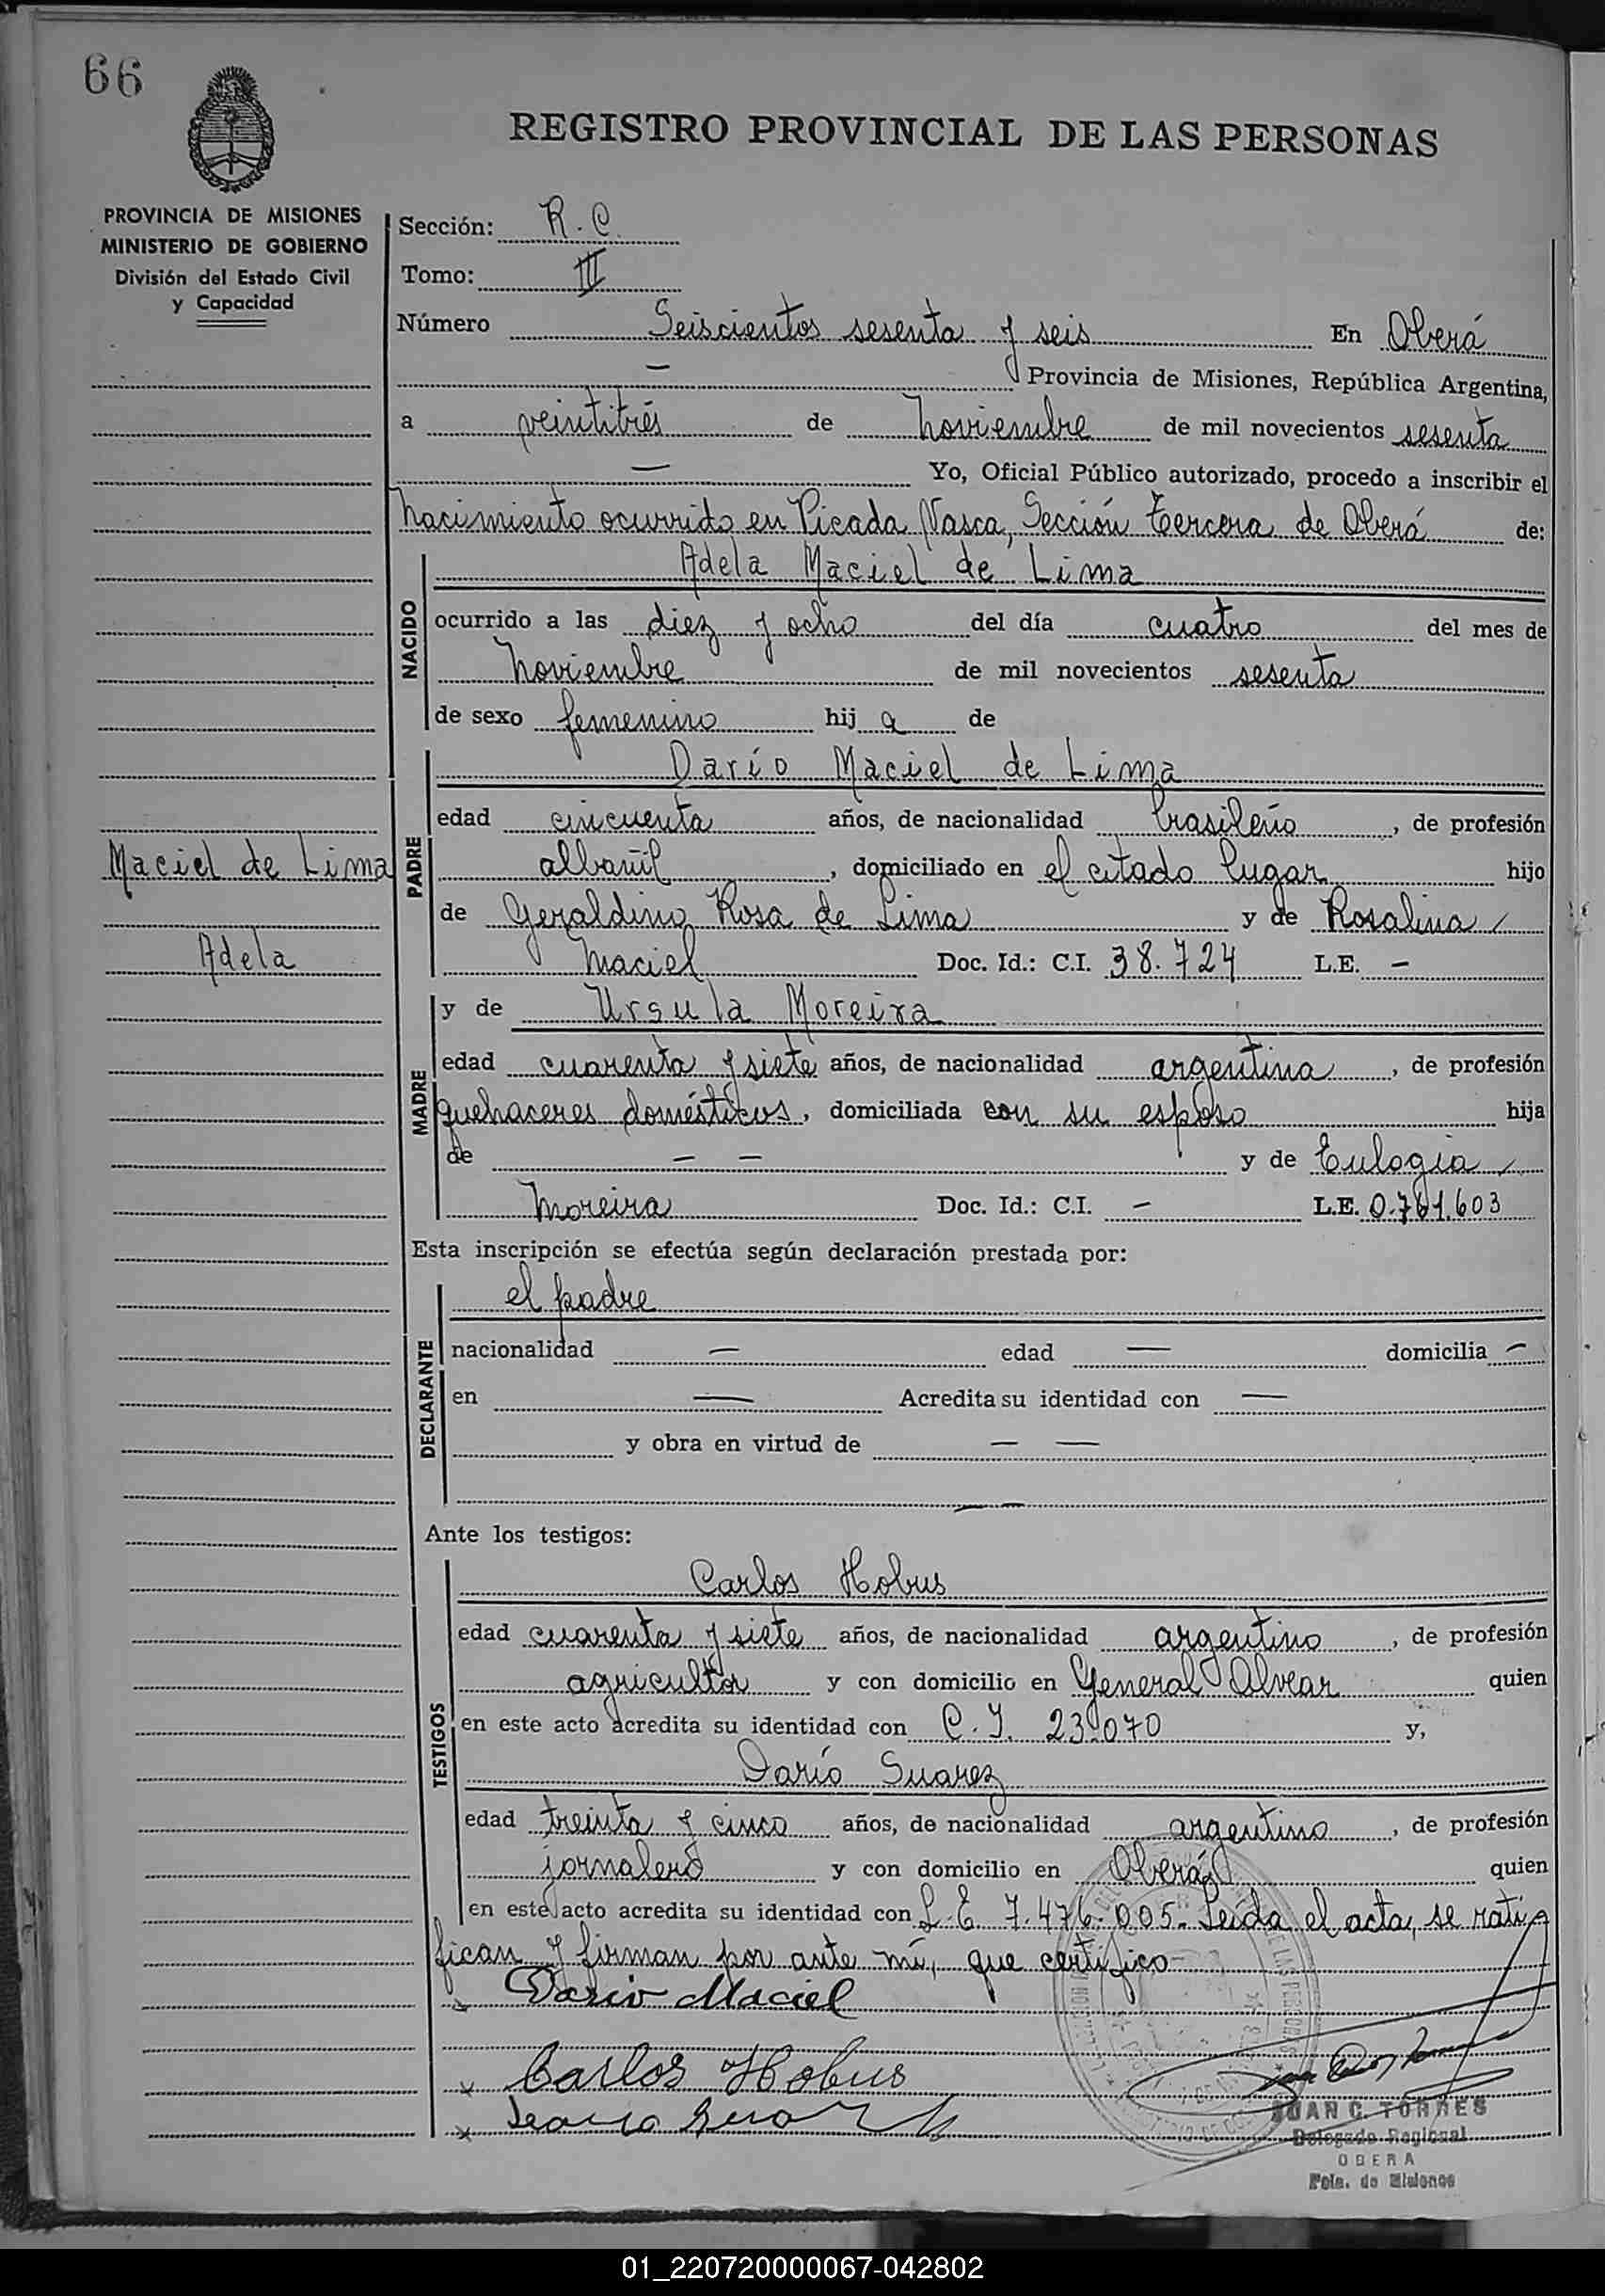 66
REGISTRO PROVINCIAL DE LAS PERSONAS
PROVINCIA DE MISIONES
MINISTERIO DE GOBIERNO
División del Estado Civil
y Capacidad
Sección: R. C.
Tomo: III
Número Seiscientos sesenta y seis En Oberá
— Provincia de Misiones, República Argentina,
a veintitrés de Noviembre de mil novecientos sesenta
— Yo, Oficial Público autorizado, procedo a inscribir el
Nacimiento ocurrido en Picada Vasca, Sección Tercera de Oberá de:
NACIDO
Adela Maciel de Lima
ocurrido a las diez y ocho del día cuatro del mes de
Noviembre de mil novecientos sesenta
de sexo femenino hij a de
PADRE
Darío Maciel de Lima
edad cincuenta años, de nacionalidad brasileño, de profesión
Maciel de Lima
albañil, domiciliado en el citado lugar hijo
de Geraldino Rosa de Lima y de Rosalina /
Adela
Maciel Doc. Id.: C.I. 38.724 L.E. —
MADRE
y de Ursula Moreira
edad cuarenta y siete años, de nacionalidad argentina, de profesión
quehaceres domésticos, domiciliada con su esposo hija
de — — y de Eulogia /
Moreira Doc. Id.: C.I. — L.E. 0.761.603
Esta inscripción se efectúa según declaración prestada por:
DECLARANTE
el padre
nacionalidad — edad — domicilia —
en — Acredita su identidad con —
y obra en virtud de — —
— —
Ante los testigos:
TESTIGOS
Carlos Hobus
edad cuarenta y siete años, de nacionalidad argentino, de profesión
agricultor y con domicilio en General Alvear quien
en este acto acredita su identidad con C. I. 23.070 y,
Darío Suarez
edad treinta y cinco años, de nacionalidad argentino, de profesión
jornalero y con domicilio en Oberá quien
en este acto acredita su identidad con L. E. 7.476.005. Leída el acta, se rati
fican y firman por ante mí, que certifico—
x Dario Maciel
x Carlos Hobus
x
JUAN C. TORRES
Delegado Regional
OBERA
Pcia. de Misiones
01_220720000067-042802